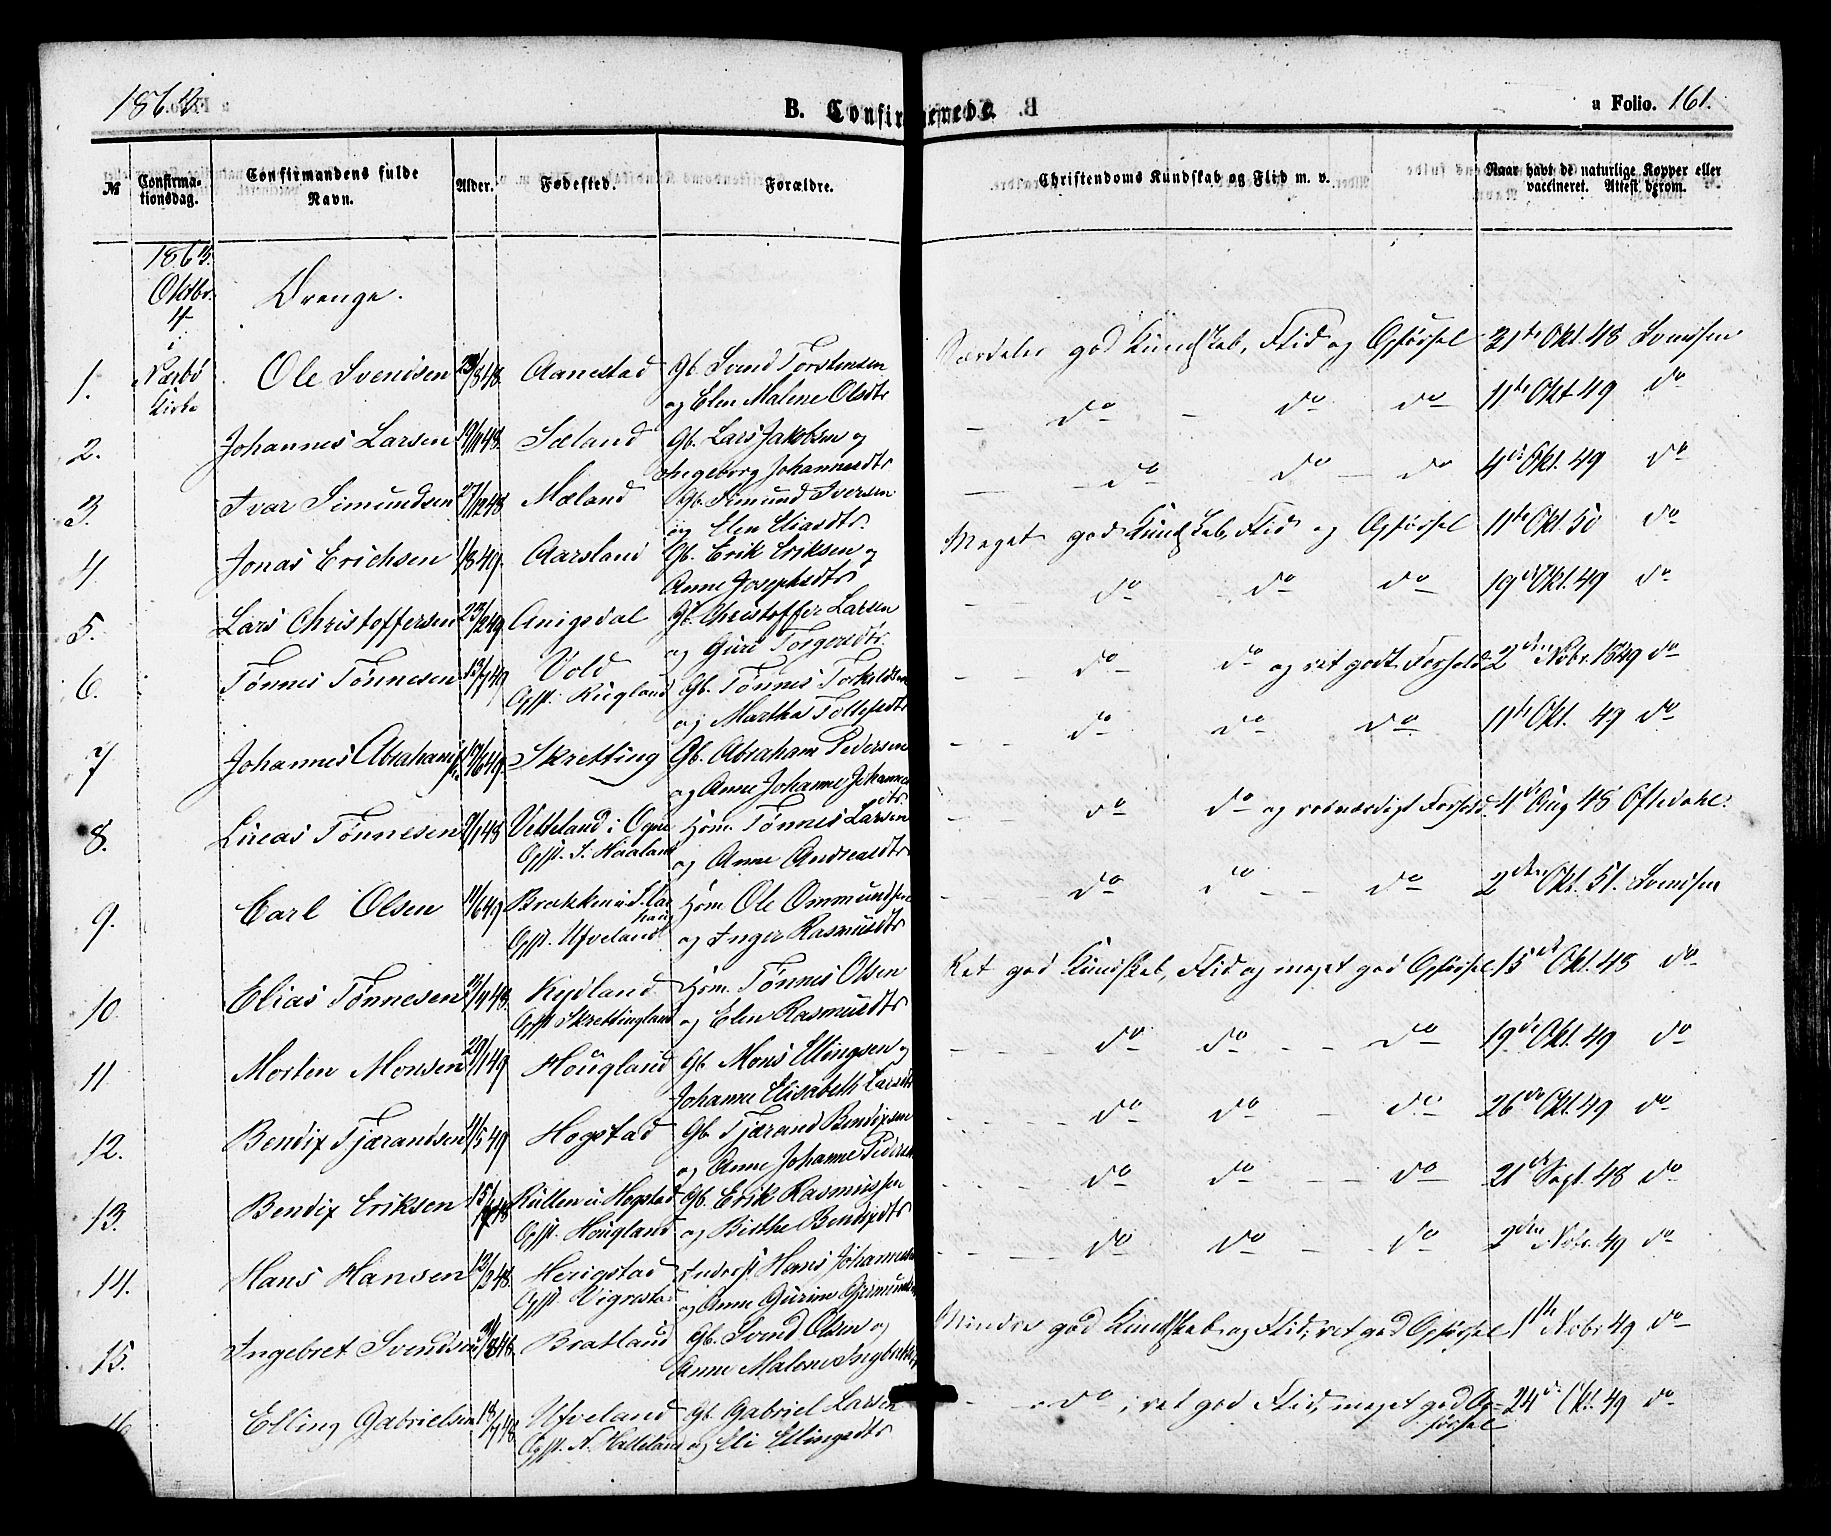 1863.
B. Confirmerede.
a Folio. 161.
№ Confirmationsdag. Confirmandens fulde Navn. Alder. Fødested. Forældre. Christendoms Kundskab og Flid m. v. Naar havt de naturlige Kopper eller vaccineret. Attest derom.
1863.
Oktbr.
4
i
Nærbø
Kirke
Drenge.
1. Ole Svendsen 8/48. Aanestad Gb. Svend Torstensen
og Elen Malene Olsdtr
Særdeles god Kundskab, Flid og Opførsel 31te Okt. 48 Svendsen
2. Johannes Larsen 48. Sæland Gb. Lars Jakobsen og
Ingeborg Johannesdtr
do do do 11te Okt 49 do
3. Ivar Simundsen 27/12 48 Mæland Gb. Simund Iversen
og Elen Eliasdtr.
do do do 4de Okt. 49 do
4. Jonas Erichsen 1/8 49. Aarsland Gb. Erik Eriksen og
Anne Josephsdtr
Meget god Kundskab, Flid og Opførsel 11te Okt. 50 do
5. Lars Christoffersen 23/2 49 Anigsdal Gb. Christoffer Larsen
og Guri Torgersdtr.
do do do 19de Okt. 49 do
6. Tønnes Tønnesen 13/7 49 Vold
Opff. Rugland Gb. Tønnes Torkildsen
og Martha Tollefsdtr
do do og ret godt Forhold 2den Nobr. 1849 do
7 Johannes Abrahams. 17/6 49 Skretting Gb. Abraham Pedersen
og Anne Johanne Johannesdtr.
do do do 11te Okt. 49 do
8. Lucas Tønnesen 9/1 48 Vetteland i Ogne
Opff. S. Haaland Hsm. Tønnes Larsen
og Anne Andreasdtr
do do og roesværdigt Forhold. 4de Aug 48 Oftedahl.
9. Carl Olsen 11/6 49 Brækken u.
Opff. Ufveland Hsm. Ole Ommundsen
og Inger Rasmusdtr
do do do 2den Okt. 51. Svendsen
10. Elias Tønnesen 48. Kydland
Opff Skrettingland Hsm. Tønnes Olsen
og Elen Rasmusdtr
Ret god Kundskab, Flid og meget god Opførsel 15de Okt. 48 do
11. Morten Monsen 29/1 49 Høugland Gb. Mons Ellingsen og
Johanne Elisabeth Larsdtr
do do do 19de Okt. 49 do
12. Bendix Tjærandsen 5 49 Hogstad Gb. Tjærand Bendixsen
og Anne Johanne Peders
do do do 26de Okt. 49 do
13. Bendix Eriksen 15/ 48 Kullen u. Hogstad
Opff. Høugland Gb. Erik Rasmussen
og Birthe Bendixdtr
do do do 21de Sept. 48 do
14. Hans Hansen 12/3 48. Herigstad
Opff. Vigrestad Inderst Hans Johannes
og Anne Gurine Gjermunds
do do do 2den Nobr. 49 do
15. Ingebret Svendsen 8 48. Bratland Gb. Svend Olsen og
Anne Malene
Mindre god Kundskab og Flid, ret god Opførsel 1ste Nobr 49 do
16 Elling Gabrielsen 18/7 48. Ufveland
Opff. N. Gb. Gabriel Larsen
og Eli Ellingsdtr
do, ret god Flid, meget god Opførsel 24de Okt. 49 do